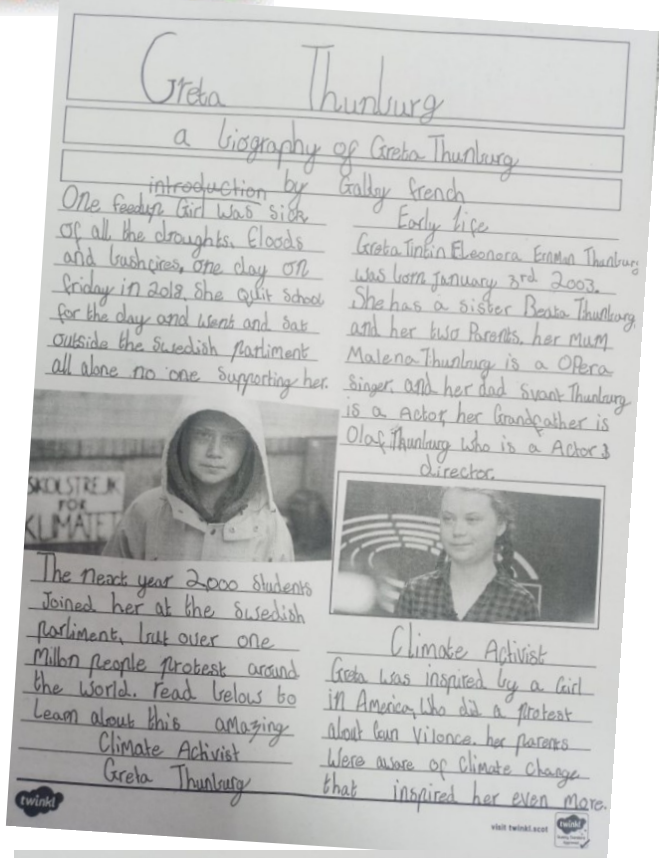 Greta Thunburg
a biography of Greta Thunburg
introduction by Gabby french
One feedup Girl was sick
of all the droughts, floods
and bushfires, one day on
friday in 2018. She Quit School
for the day and went and sat
outside the Swedish parliment
all alone no one supporting her.
SKOLSTREJK
FÖR
KLIMATET
The neact year 2,000 students
Joined her at the Swedish
parliment, but over one
Millon people protest around
the world. read below to
Learn about this amazing
Climate Activist
Greta Thunburg
Early life
Greta Tintin Eleonora Ernman Thunburg
was born January 3rd 2003.
She has a sister Beata Thunburg
and her two Parents. her mum
Malena Thunburg is a Opera
Singer, and her dad Svant Thunburg
is a Actor, her Grandfather is
Olaf Thunburg who is a Actor &
director.
Climate Activist
Greta was inspired by a Girl
in America, Who did a protest
about Gun vilonce. her parents
Were aware of Climate Change
that inspired her even more.
twinkl
visit twinkl.scot
twinkl